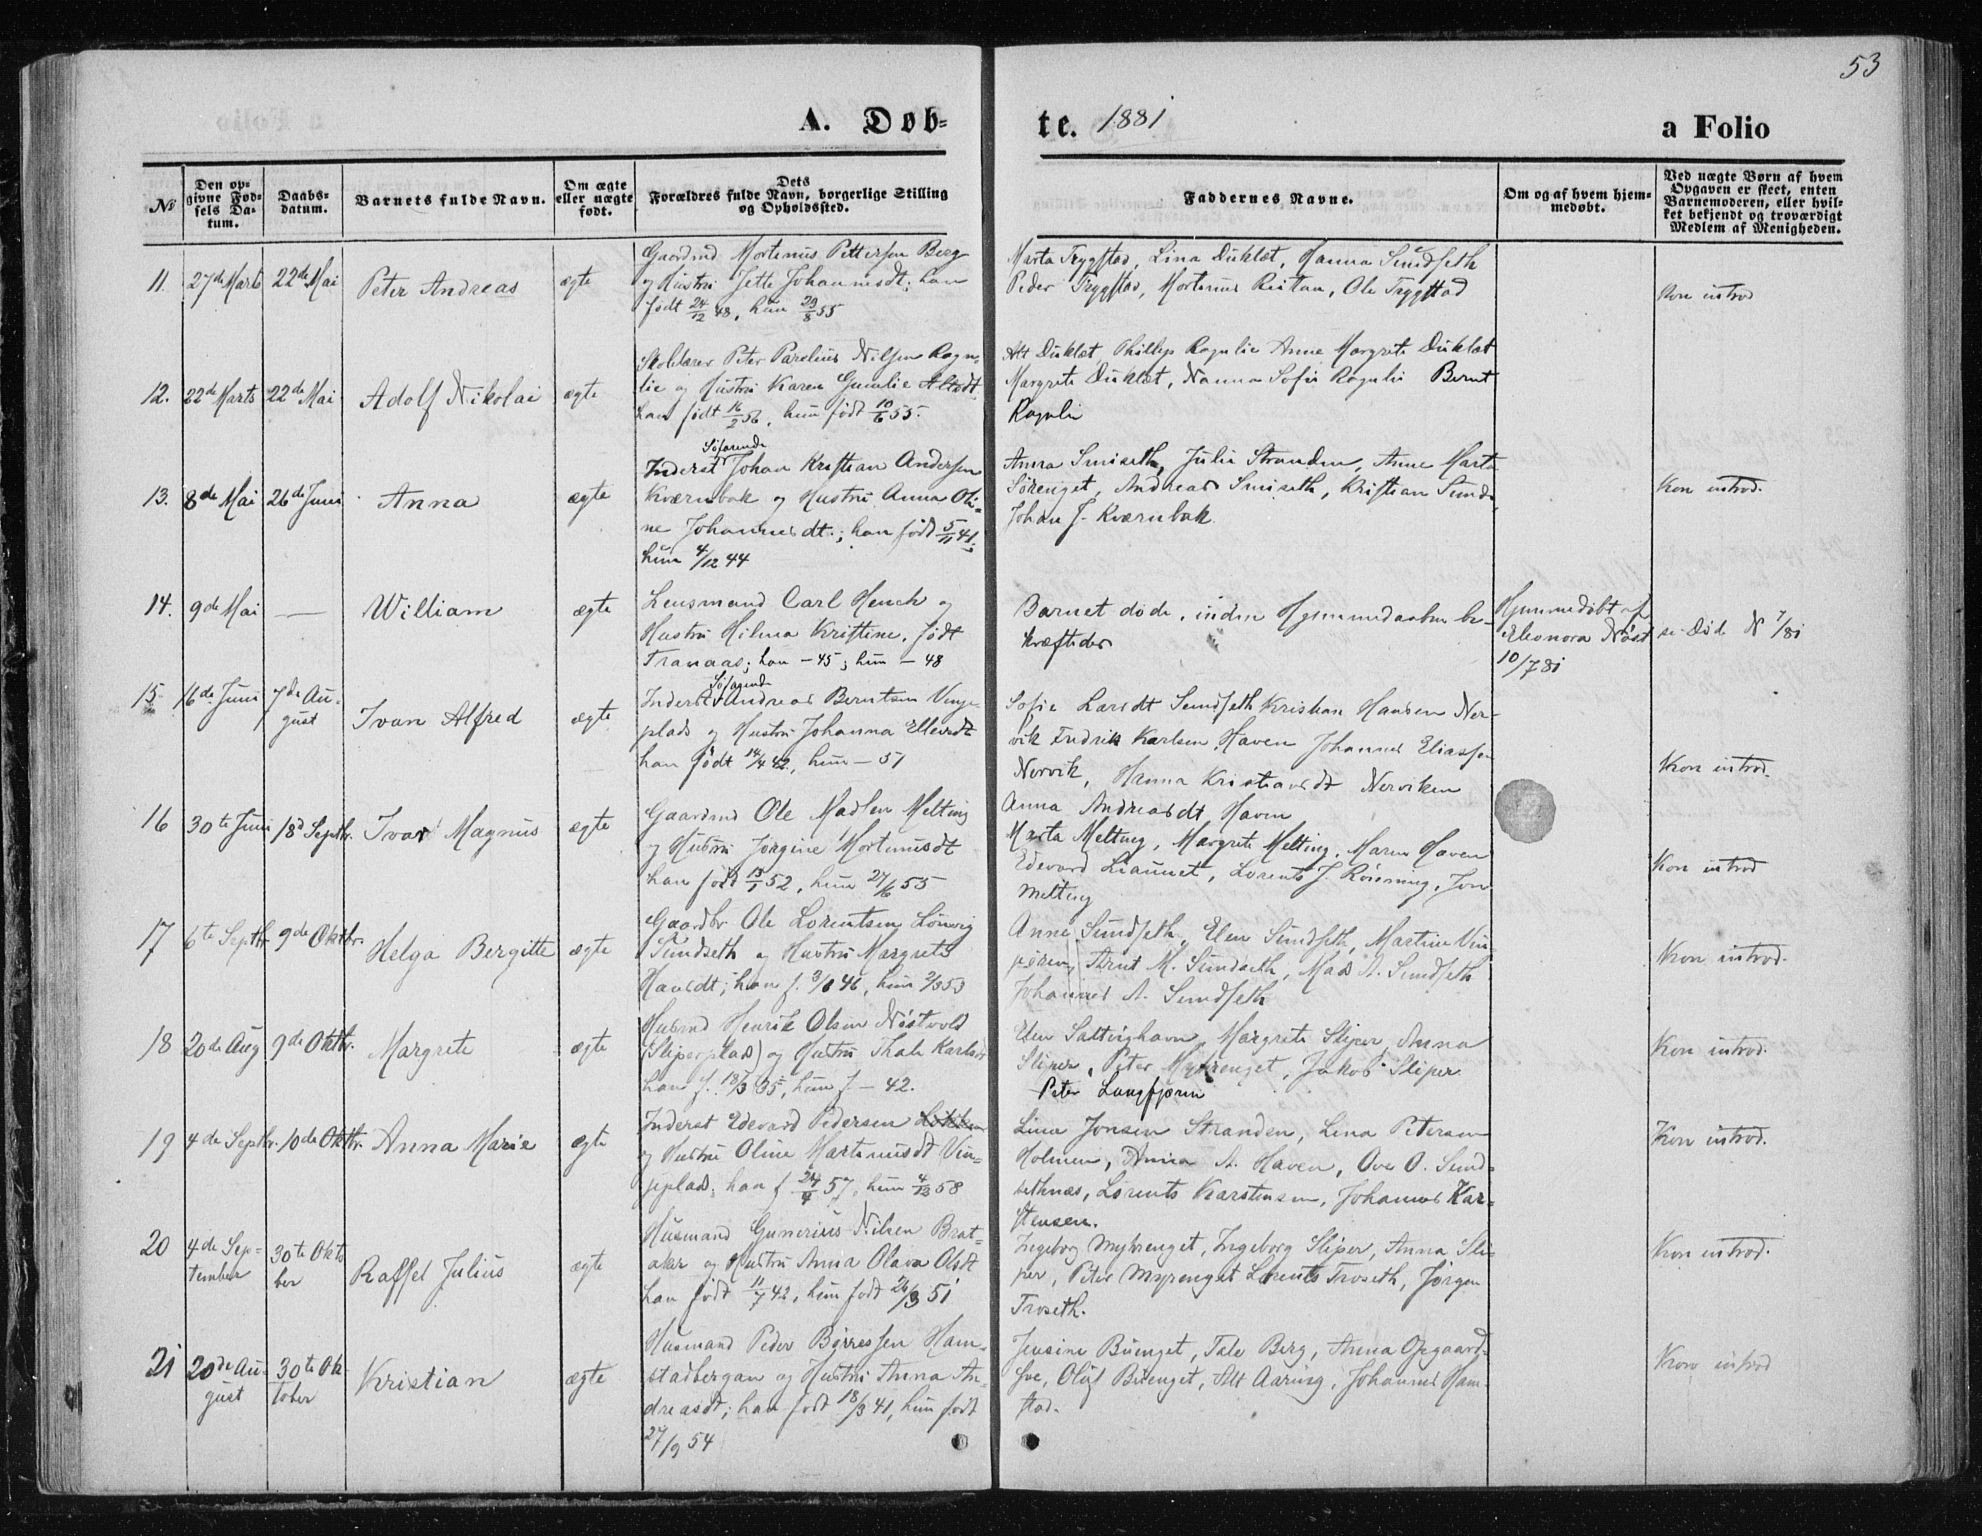 53
A. Døb-
te. 1881
a Folio
№
Den op-
givne Fød-
sels Da-
tum.
Daabs-
datum.
Barnets fulde Navn.
Om ægte
eller uægte
født.
Dets
Forældres fulde Navn, borgerlige Stilling
og Opholdssted.
Faddernes Navne.
Om og af hvem hjem-
medøbt.
Ved uægte Børn af hvem
Opgaven er skeet, enten
Barnemoderen, eller hvil-
ket bekjendt og troværdigt
Medlem af Menigheden.
11. 27de Marts 22de Mai Peter Andreas ægte
Gaardmd Mortinus Pettersen Berg
og Hustru Jette Johannesdt; han
født 24/12 48, hun 29/8 55
Marta Trygstad, Lina Duklæt, Hanna Sundseth
Peder Trygstad, Mortinus Reitan, Ole Trygstad
Kon introd
12. 22de Marts 22de Mai Adolf Nikolai ægte
Skolelærer Peter Parelius Nilsen Rogn-
lie og Hustru Karen Gunelie Altsdt
han født 16/2 56, hun født 10/6 55.
Alt Duklæt, Phillip Rognlie Anne Margrete Duklæt
Margrete Duklæt, Nanna Sofie Rognlie Bernt
Rognlie
13. 8de Mai 26de Juni Anna ægte
Søfarende
Inderst Johan Kristian Andersen
Kværnbak og Hustru Anna Oli-
ne Johannesdt.; han født 5/11 41;
hun 4/12 44
Anna Smiseth, Julie Stranden, Anne Marta
Sørenget, Andreas Smiseth, Kristian Sund,
Johan J. Kværnbak.
Kon introd.
14. 9de Mai — William ægte
Lensmand Carl Henck og
Hustru Hilma Kristine, født
Tranaas; han – 45; hun – 48
Barnet døde, inden Hjemmedaaben be-
kræftedes
Hjemmedøbt af
Eleonora Nøst
10/7 81
se Død N 7/81
15 16de Juni 7de Au-
gust Ivan Alfred ægte
Søfarende
Inderst Andreas Berntsen Vinge-
plads og Hustru Johanna Ellevsdt
han født 14/4 42, hun – 51
Sofie Larsdt Sundseth Kristian Hansen Ner-
vik Fredrik Karlsen Haven Johannes Eliassen
Nervik, Hanna Kristiansdt Nerviken
Anna Andreasdt Haven
Kon introd.
16 30te Juni 18d Septbr. Ivar Magnus ægte
Gaardmd Ole Madsen Melting
og Hustru Jørgine Mortinusdt
han født 13/1 52, hun 27/6 55
Marta Melting, Margrete Melting, Maren Haven
Edevard Liaunet, Lorents J. Rønning, Jon
Melting
Kon introd
17 6te Septbr. 9de Oktbr. Helga Bergitte ægte
Gaardbr Ole Lorentsen Lønvig
Sundseth og Hustru Margrete
Hansdt; han f. 3/6 46, hun 2/3 53
Anne Sundseth, Elen Sundseth, Martine Vin-
Arnt M. Sundseth, Mads A. Sundseth
Johannes A. Sundseth
Kon introd.
18 20de Aug 9de Oktbr. Margrete ægte
Husmd Henrik Olsen Nøstvold
(Sliperplads) og Hustru Thale Karlsdt
han f. 18/3 35, hun f – 42.
Elen Saltvighavn, Margrete Sliper, Anna
Sliper, Peter Myrenget, Jakob Sliper
Peter Langfjæren
Kon introd.
19 4de Septbr. 10de Oktbr. Anna Marie ægte
Inderst Edevard Pedersen
og Hustru Oline Martinusdt Vin-
geplads; han f 24/4 57, hun 4/12 58
Lina Jonsen Stranden, Lena Petersen
Holmen, Anna A. Haven, Ove O. Sund-
sethnæs, Lorents Karstensen, Johannes Kar-
stensen.
Kon introd.
20 4de Sep-
tember 30te Okto
ber Raffel Julius ægte
Husmand Gunerius Nilsen Brat-
aker og Hustru Anna Olava Olsdt
han født 11/7 42, hun født 26/3 51
Ingeborg Myhrenget, Ingeborg Sliper, Anna Sli-
per, Peter Myrenget Lorents Troseth, Jørgen
Troseth.
Kon introd.
21 20de Au-
gust 30te Ok-
tober Kristian ægte
Husmand Peder Børresen Ham-
stadbergan og Hustru Anna An-
dreasdt; han født 18/3 41, hun født
27/9 54
Jensine Buenget, Tale Berg, Anna Opgaard-
hve, Oluf Buenget, Alt Aaring, Johannes Ham-
stad.
Kon introd